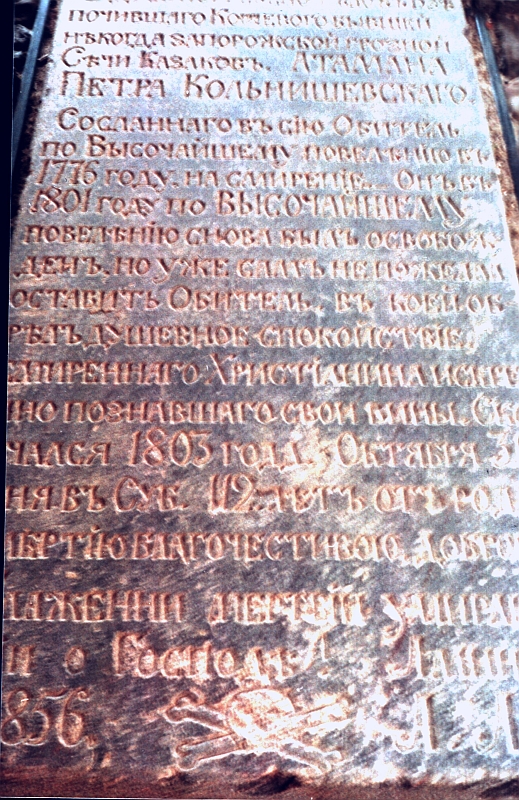 почившаго Кошевого бывшей
нѣкогда запорожской грозной
Сѣчи Казаковъ. Атамана
Петра Кольнишевскаго.
Сосланнаго въ сію Обитель
по Высочайшему повелѣнію въ
1776 году. на смиреніе. Онъ въ
1801 году по Высочайшему
повелѣнію снова былъ освобож
денъ. но уже самъ не пожелал
оставить Обитель, въ коей об
рѣлъ душевное спокойствіе
смиреннаго Христіанина искре
но познавшаго свои вины. Ско
чался 1803 года. Октября 31
ня въ Суб. 112 лѣтъ отъ род
мертію благочестивою. добр
лаженни мертвіи умира
и о Господѣ! Аминь
856, А. А